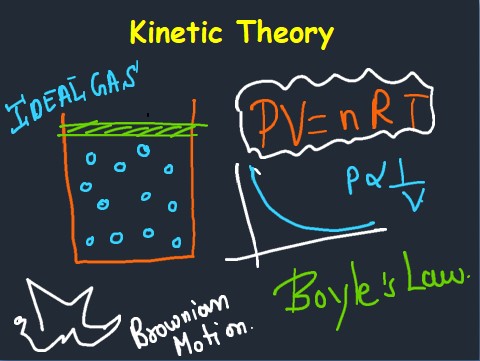 Kinetic Theory
IDEAL GAS
PV = nRT
P ∝ 1/V
Boyle's Law.
Brownian
Motion.